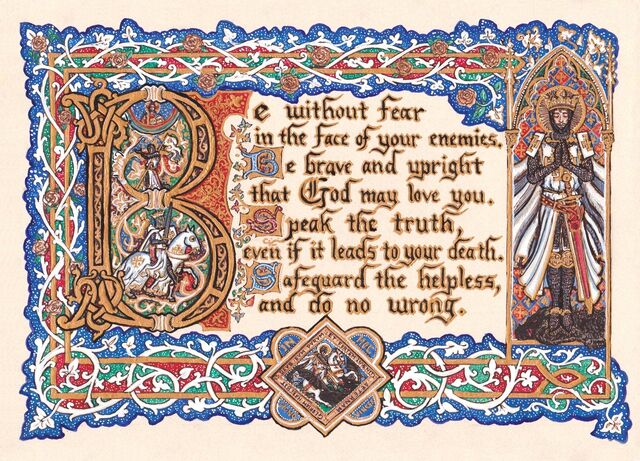 Be without fear
in the face of your enemies.
Be brave and upright
that God may love you.
Speak the truth,
even if it leads to your death.
Safeguard the helpless,
and do no wrong.